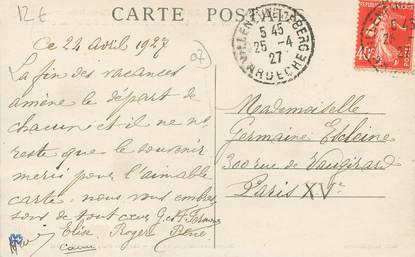 12 €
CARTE POSTALE
VILLENEUVE-DE-BERG
5 45
25 -4
27
ARDECHE
Ce 24 Avril 1927
07
La fin des vacances
amène le départ de
chacun et il ne me
reste que le souvenir
merci pour l'aimable
carte, nous vous embras
sons de tout cœur G. et
Elise Roger
Mademoiselle
Germaine
300 rue de Vaugirard
Paris XV e